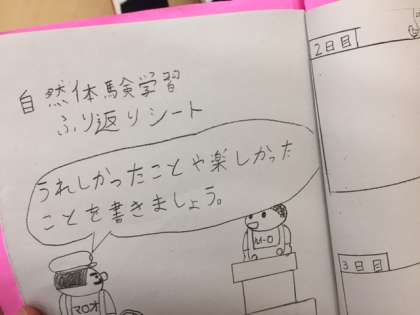 自然体験学習
ふり返りシート
うれしかったことや楽しかった
ことを書きましょう。
M-O
マロオ
2日目
3日目